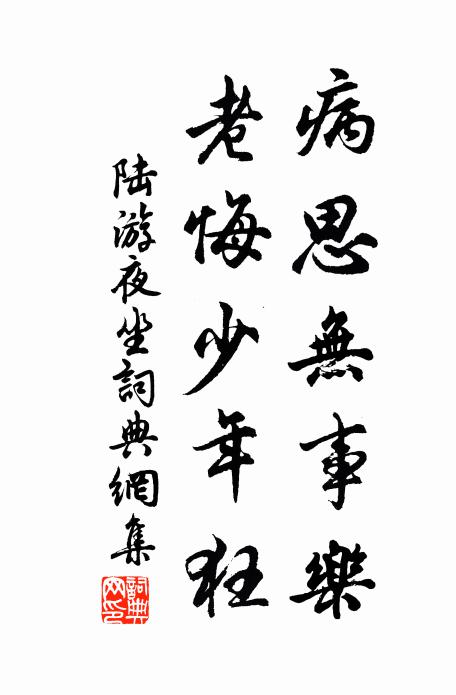 病思無事樂
老悔少年狂
陆游夜坐詞典網集
詞典网印